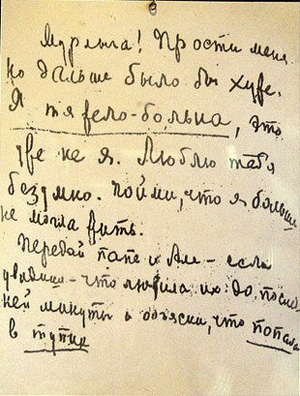 Мурлыга! Прости меня
но дальше было бы хуже.
Я тяжело-больна, это
уже не я. Люблю тебя
безумно. Пойми, что я больше
не могла жить.
Передай папе и Але - если
увидишь - что любила их до послед-
ней минуты и объясни, что попала
в тупик